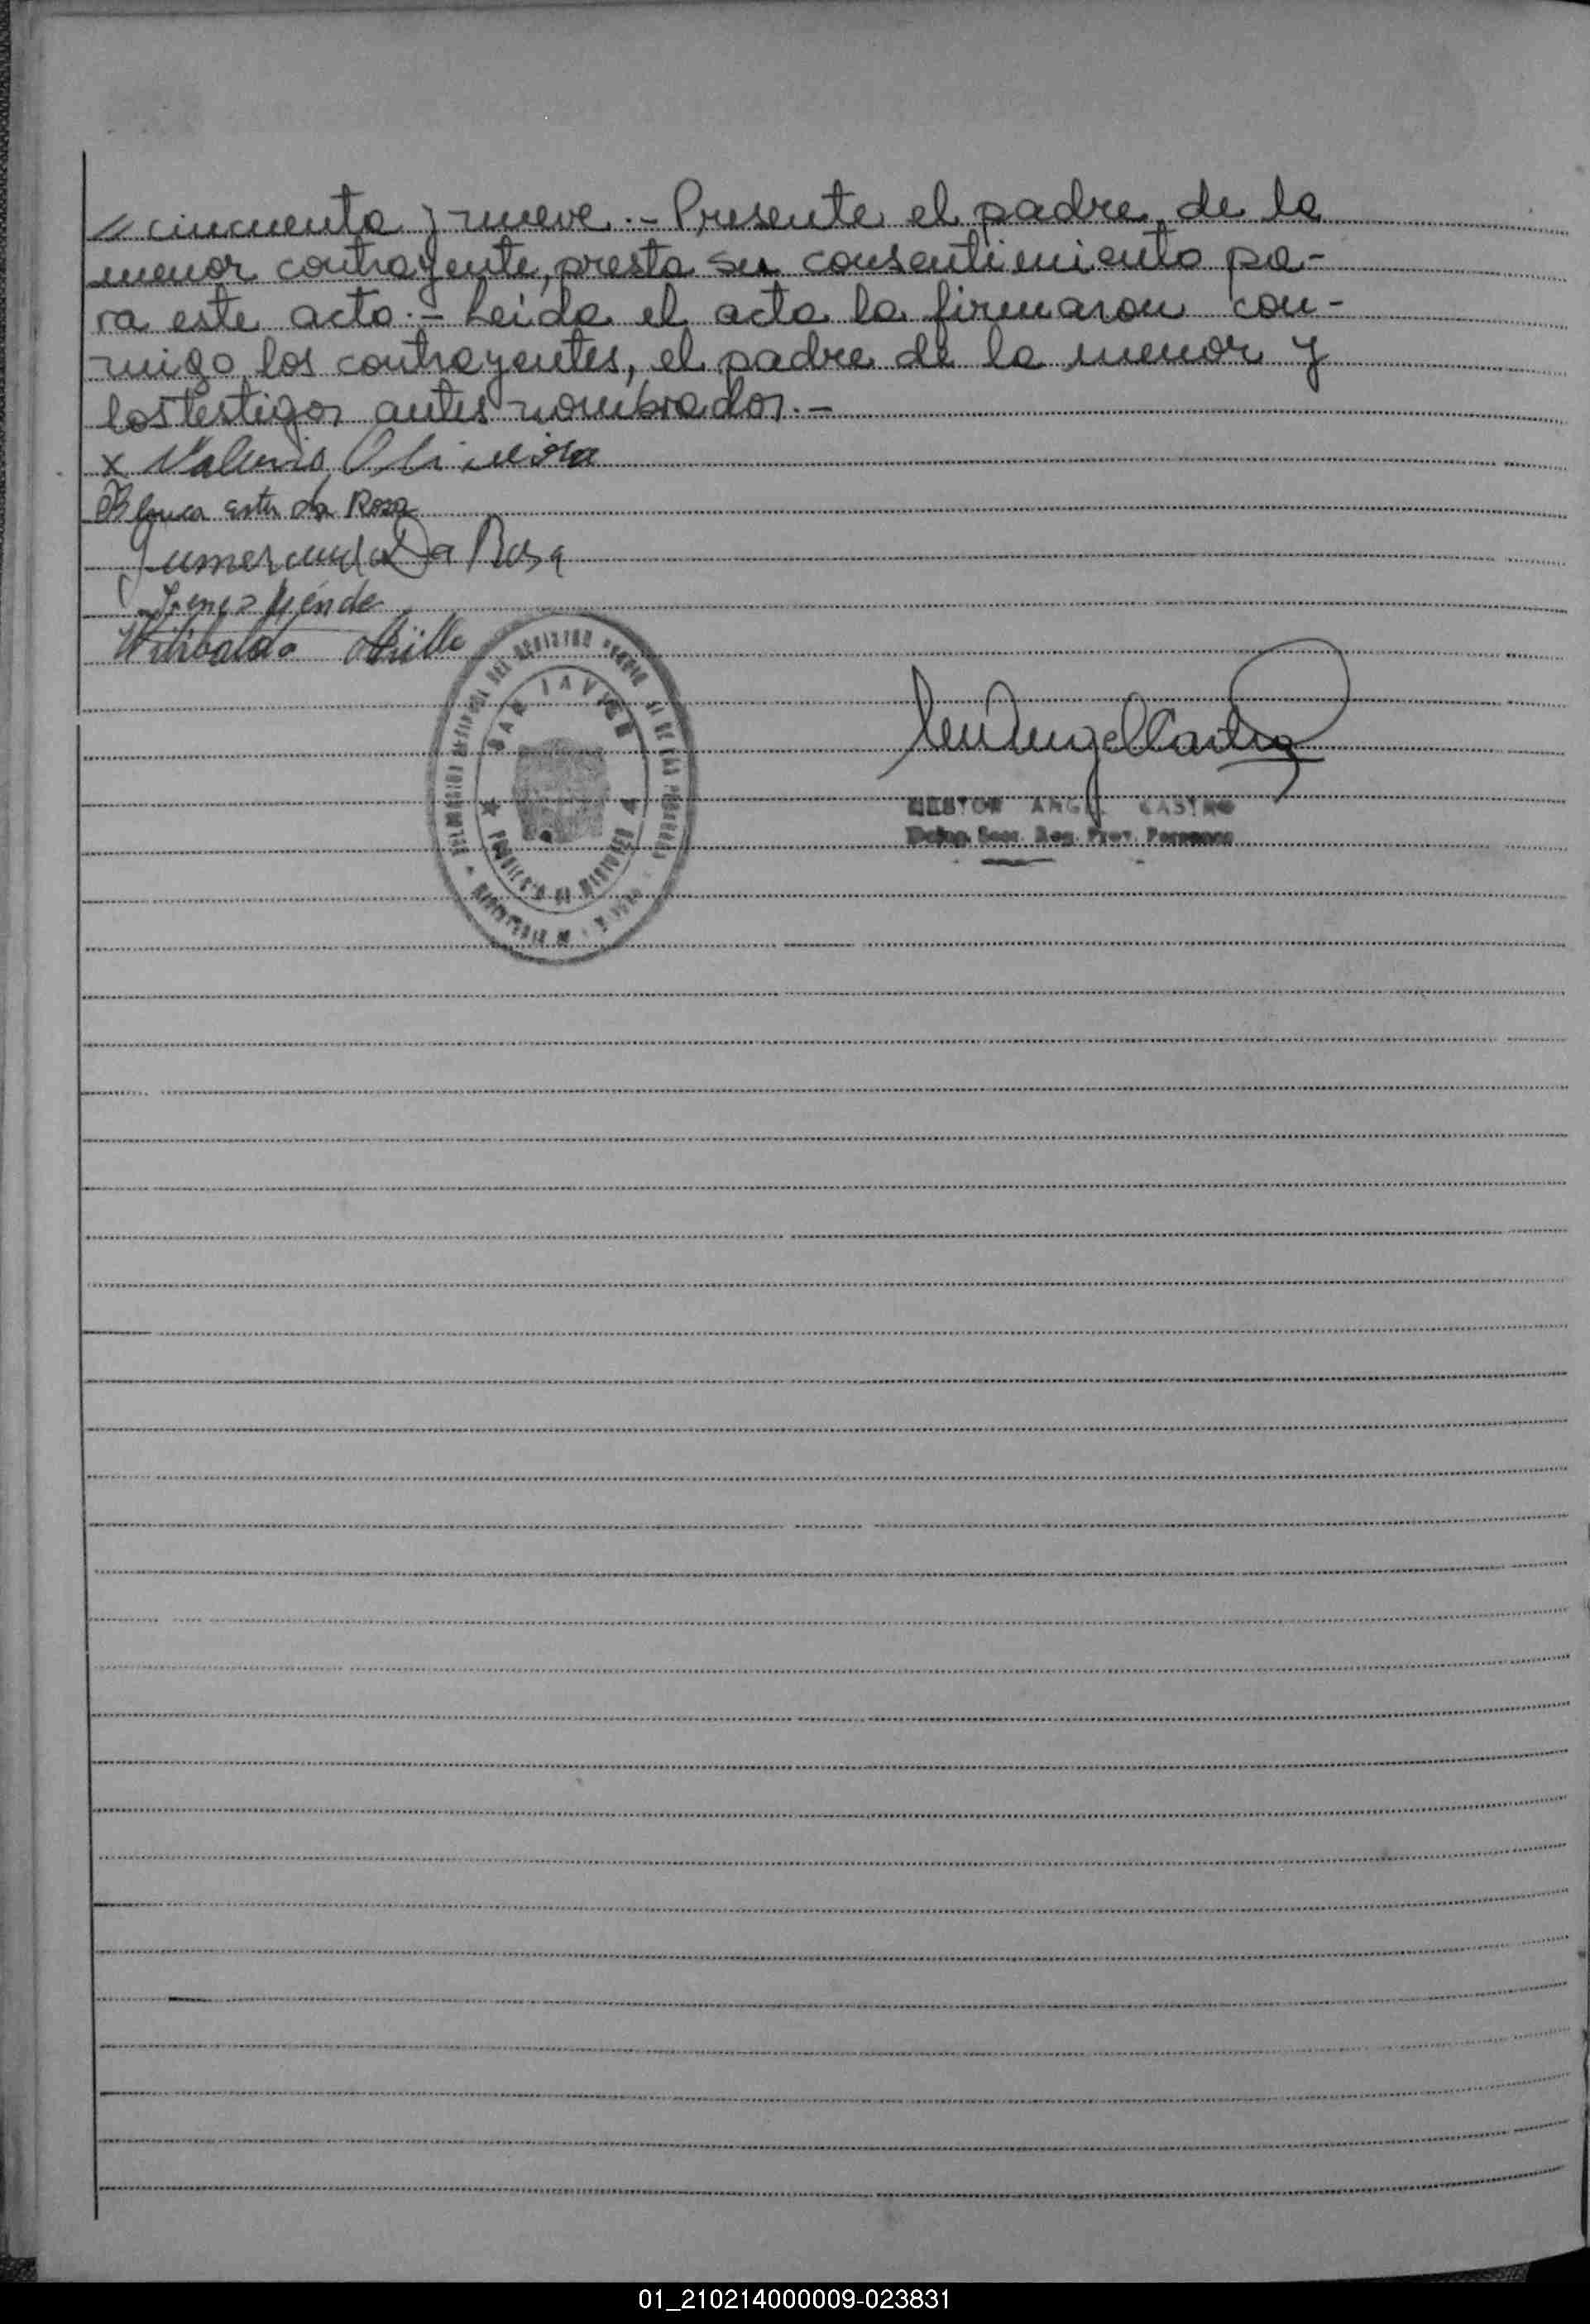 // cincuenta y nueve.- Presente el padre de la
menor contrayente, presta su consentimiento pa-
ra este acto.- Leida el acta la firmaron con-
migo los contrayentes, el padre de la menor y
los testigos antes nombrados.-
x Valerio Oliveira
Blanca Ester da Rosa
Gumercindo Da Rosa
Wilibaldo
SAN JAVIER
NESTOR ANGEL CASTRO
Deleg. Secc. Reg. Prov. Personas
01_210214000009-023831